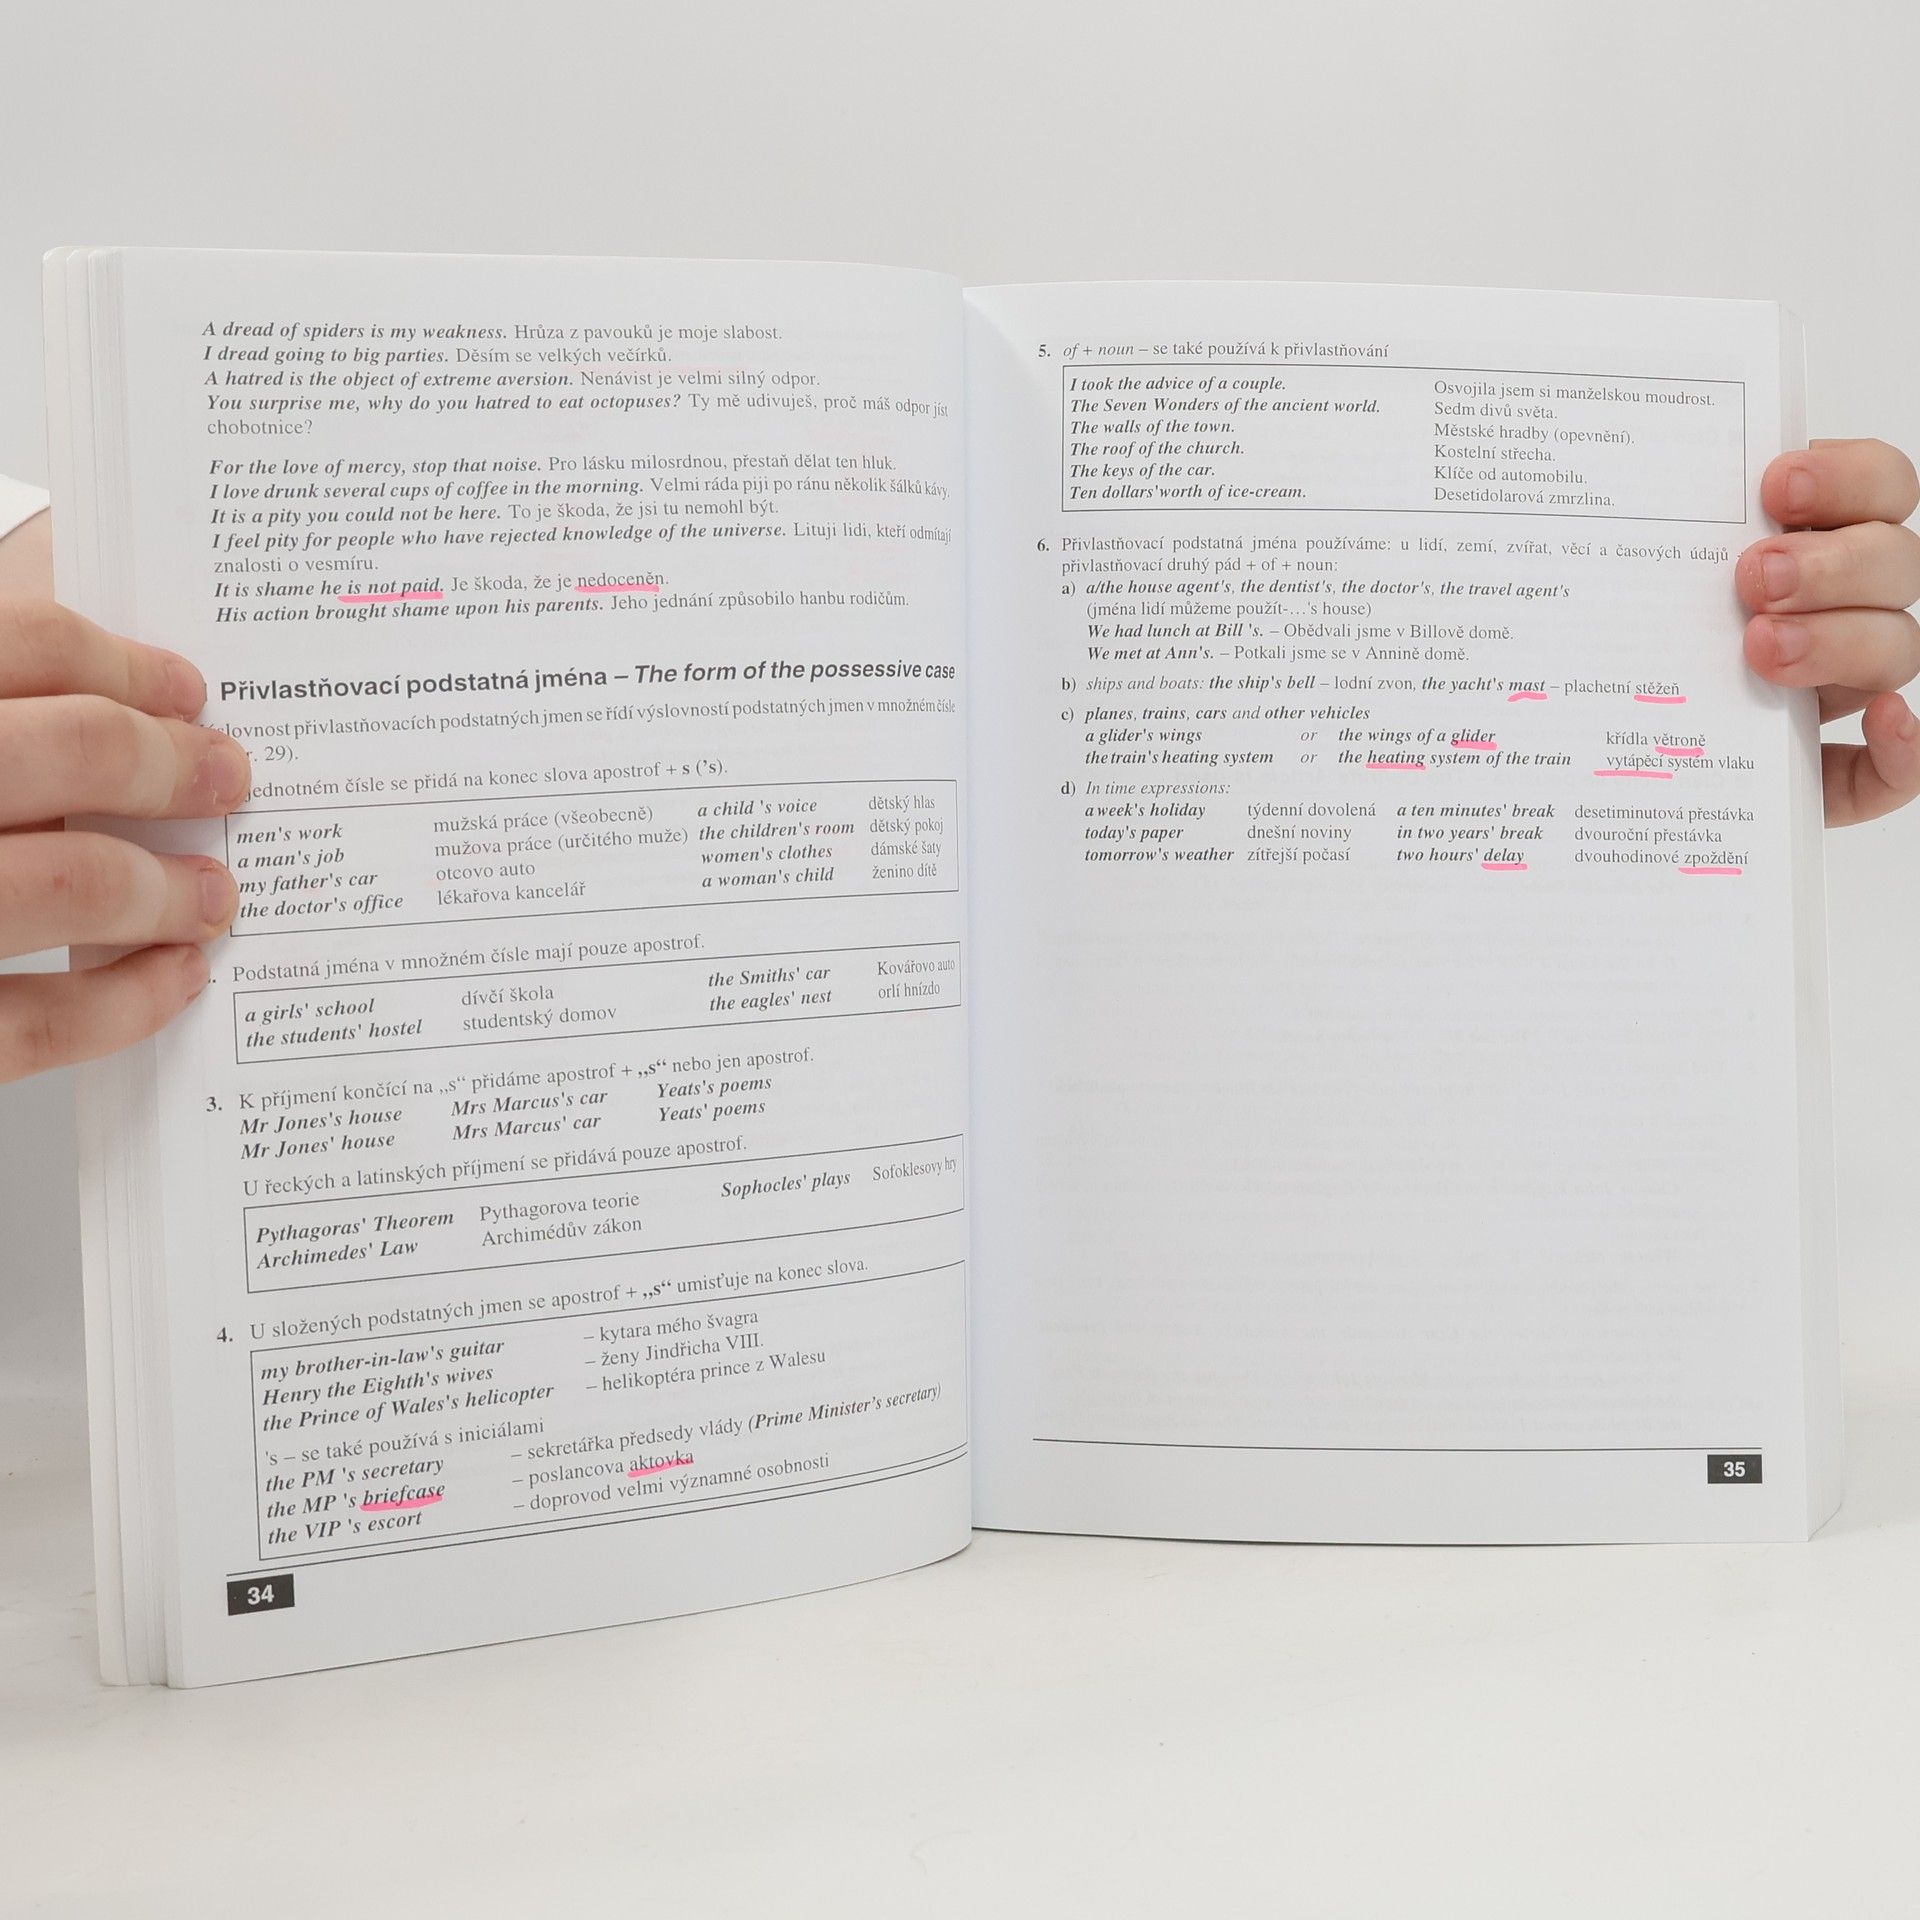 A dread of spiders is my weakness. Hrůza z pavouků je moje slabost.
I dread going to big parties. Děsím se velkých večírků.
A hatred is the object of extreme aversion. Nenávist je velmi silný odpor.
You surprise me, why do you hatred to eat octopuses? Ty mě udivuješ, proč máš odpor jíst
chobotnice?
For the love of mercy, stop that noise. Pro lásku milosrdnou, přestaň dělat ten hluk.
I love drunk several cups of coffee in the morning. Velmi ráda piji po ránu několik šálků kávy.
It is a pity you could not be here. To je škoda, že jsi tu nemohl být.
I feel pity for people who have rejected knowledge of the universe. Lituji lidi, kteří odmítají
znalosti o vesmíru.
It is shame he is not paid. Je škoda, že je nedoceněn.
His action brought shame upon his parents. Jeho jednání způsobilo hanbu rodičům.
Přivlastňovací podstatná jména – The form of the possessive case
přivlastňovacích podstatných jmen se řídí výslovností podstatných jmen v množném čísle
29).
jednotném čísle se přidá na konec slova apostrof + s ('s).
men's work mužská práce (všeobecně) a child 's voice dětský hlas
a man's job mužova práce (určitého muže) the children's room dětský pokoj
my father's car otcovo auto women's clothes dámské šaty
the doctor's office lékařova kancelář a woman's child ženino dítě
Podstatná jména v množném čísle mají pouze apostrof.
a girls' school dívčí škola the Smiths' car Kovářovo auto
the students' hostel studentský domov the eagles' nest orlí hnízdo
3. K příjmení končící na „s“ přidáme apostrof + „s“ nebo jen apostrof.
Mr Jones's house Mrs Marcus's car Yeats's poems
Mr Jones' house Mrs Marcus' car Yeats' poems
U řeckých a latinských příjmení se přidává pouze apostrof.
Pythagoras' Theorem Pythagorova teorie Sophocles' plays Sofoklesovy hry
Archimedes' Law Archimédův zákon
4. U složených podstatných jmen se apostrof + „s“ umisťuje na konec slova.
my brother-in-law's guitar – kytara mého švagra
Henry the Eighth's wives – ženy Jindřicha VIII.
the Prince of Wales's helicopter – helikoptéra prince z Walesu
's – se také používá s iniciálami
the PM 's secretary – sekretářka předsedy vlády (Prime Minister's secretary)
the MP 's briefcase – poslancova aktovka
the VIP 's escort – doprovod velmi významné osobnosti
34
5. of + noun – se také používá k přivlastňování
I took the advice of a couple. Osvojila jsem si manželskou moudrost.
The Seven Wonders of the ancient world. Sedm divů světa.
The walls of the town. Městské hradby (opevnění).
The roof of the church. Kostelní střecha.
The keys of the car. Klíče od automobilu.
Ten dollars'worth of ice-cream. Desetidolarová zmrzlina.
6. Přivlastňovací podstatná jména používáme: u lidí, zemí, zvířat, věcí a časových údajů
přivlastňovací druhý pád + of + noun:
a) a/the house agent's, the dentist's, the doctor's, the travel agent's
(jména lidí můžeme použít-…'s house)
We had lunch at Bill 's. – Obědvali jsme v Billově domě.
We met at Ann's. – Potkali jsme se v Annině domě.
b) ships and boats: the ship's bell – lodní zvon, the yacht's mast – plachetní stěžeň
c) planes, trains, cars and other vehicles
a glider's wings or the wings of a glider křídla větroně
the train's heating system or the heating system of the train vytápěcí systém vlaku
d) In time expressions:
a week's holiday týdenní dovolená a ten minutes' break desetiminutová přestávka
today's paper dnešní noviny in two years' break dvouroční přestávka
tomorrow's weather zítřejší počasí two hours' delay dvouhodinové zpoždění
35